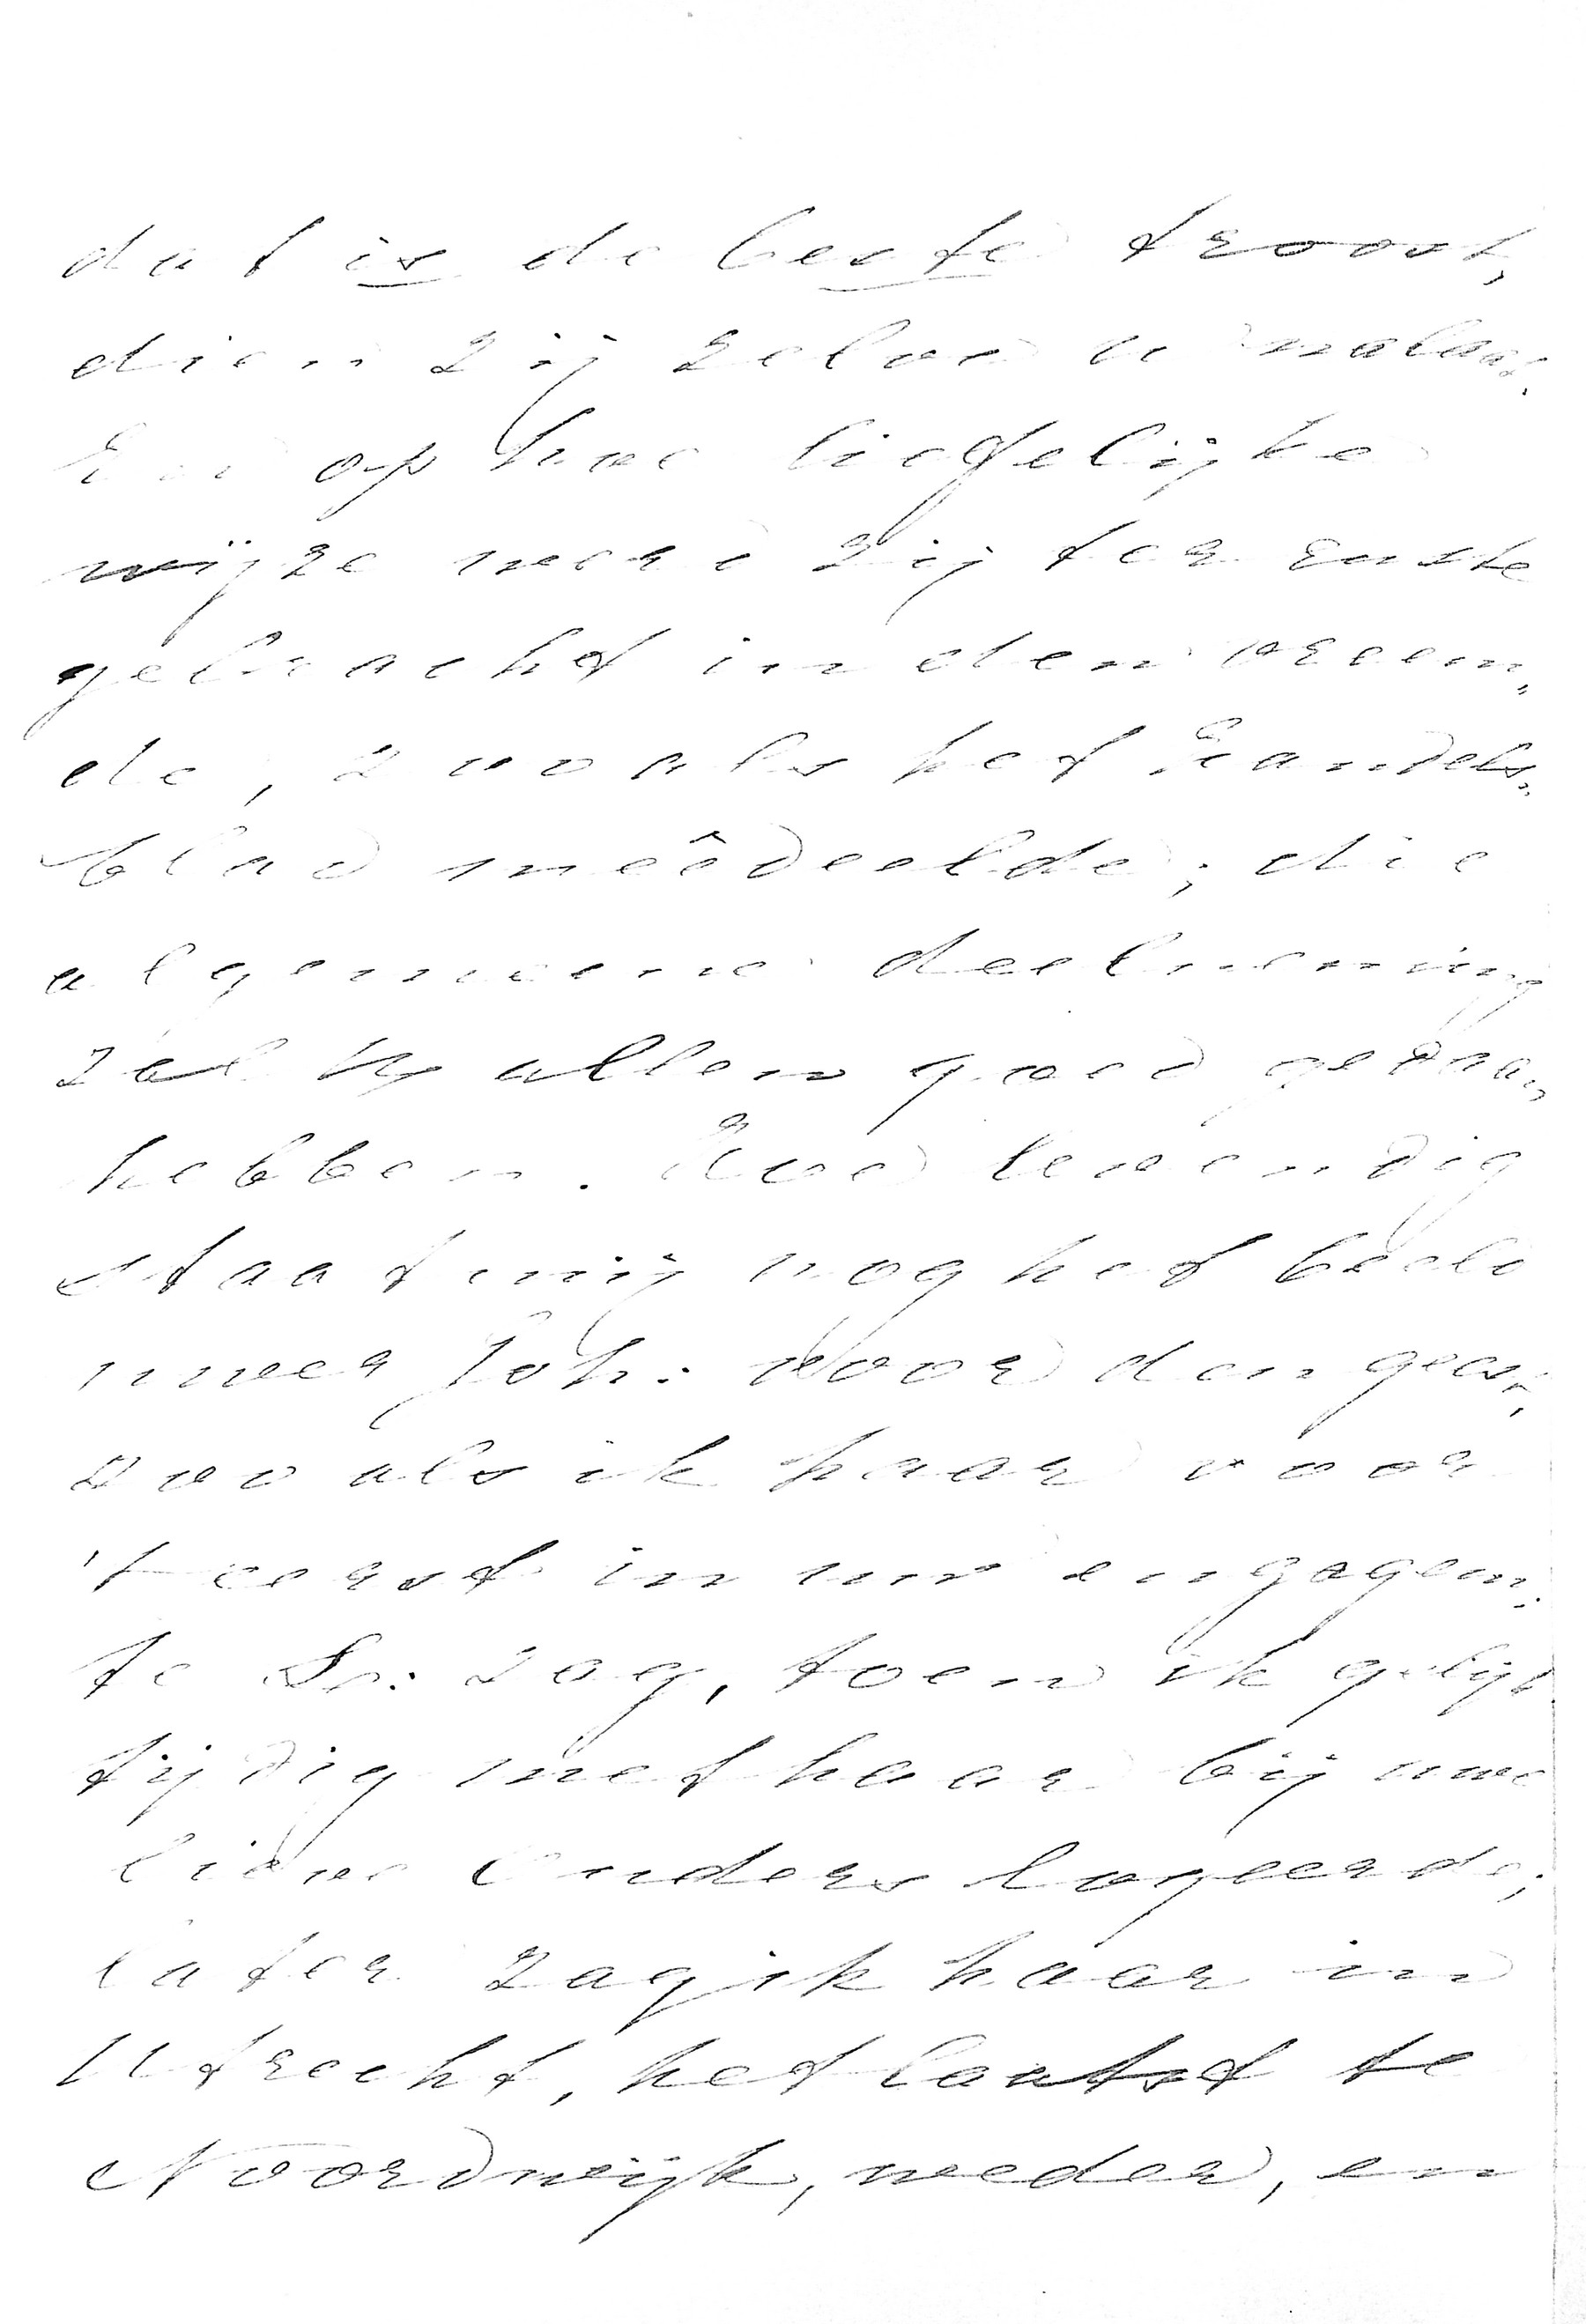 dat is de beste troost,
dien zij zelve u nalaat.
En op hoe liefelijke
wijze werd zij ter ruste
gebracht in den vreem„
de, zooals het Handels„
blad meêdeelde; die
algemeene deelneming
zal U allen goed gedaan
hebben. Hoe levendig
staat mij nog het beeld
uwer Joh: voor den geest,
zooals ik haar voor
't eerst in uw engagem:
te Dr: zag, toen ik gelijk
tijdig met haar bij uwe
lieve Ouders logeerde;
later zag ik haar in
Utrecht, het laatst te
Noordwijk, weder, en